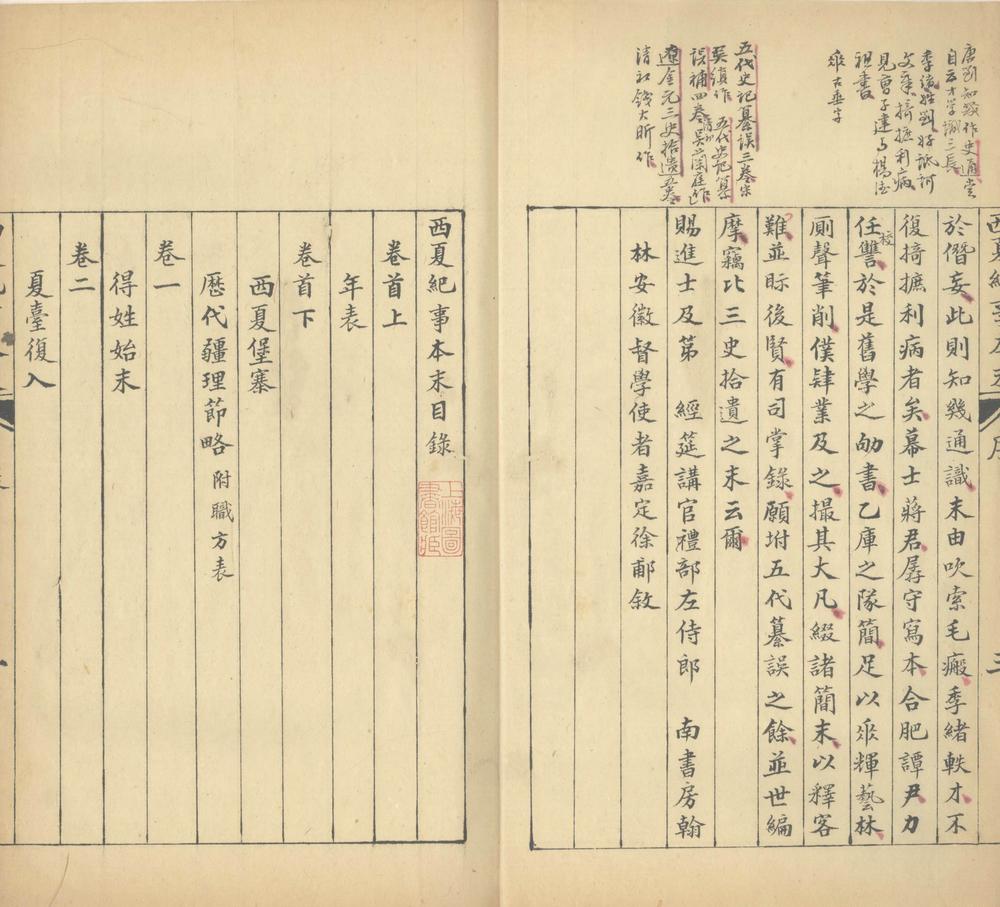 唐劉知幾作史通嘗
自云才學識三長
季緒姓劉好詆訶
文章掎摭利病
見曹子建与楊德
祖書
五代史記纂誤三卷宋
吳縝作 五代史記纂
誤補四卷清初吳蘭庭作
遼金元三史拾遺五卷
清初錢大昕作
於僭妄此則知幾通識末由吹索毛瘢季緒軼才不
復掎摭利病者矣幕士蔣君孱守寫本合肥譚尹力
任讐校於是舊學之劬書乙庫之隊簡足以乑輝藝林
廁聲筆削僕肄業及之撮其大凡綴諸簡末以釋客
難並眎後賢有司掌錄願坿五代纂誤之餘並世編
摩竊比三史拾遺之末云爾
賜進士及第 經筵講官禮部左侍郎 南書房翰
林安徽督學使者嘉定徐郙敘
西夏紀事本末目錄
卷首上
年表
卷首下
西夏堡寨
歷代疆理節略附職方表
卷一
得姓始末
卷二
夏臺復入